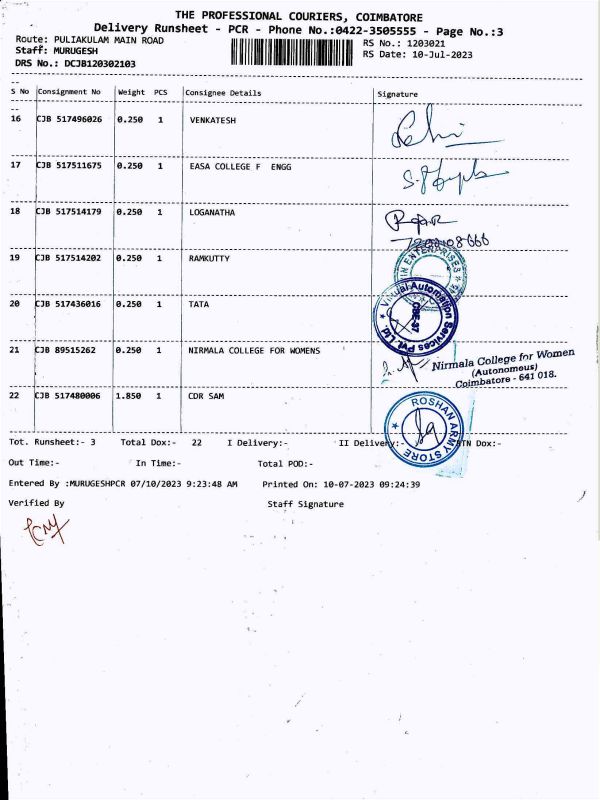 THE PROFESSIONAL COURIERS, COIMBATORE
Delivery Runsheet - PCR - Phone No.:0422-3505555 - Page No.:3
Route: PULIAKULAM MAIN ROAD RS No.: 1203021
Staff: MURUGESH RS Date: 10-Jul-2023
DRS No.: DCJB120302103
S No Consignment No Weight PCS Consignee Details Signature
16 CJB 517496026 0.250 1 VENKATESH
17 CJB 517511675 0.250 1 EASA COLLEGE F ENGG
18 CJB 517514179 0.250 1 LOGANATHA
19 CJB 517514202 0.250 1 RAMKUTTY
ENTERPRISES
20 CJB 517436016 0.250 1 TATA
Virtual Automation Services Pvt. Ltd.
CBE-37
21 CJB 89515262 0.250 1 NIRMALA COLLEGE FOR WOMENS
Nirmala College for Women
(Autonomous)
Coimbatore - 641 018.
22 CJB 517480006 1.850 1 CDR SAM
ROSHAN ARMY STORE
Tot. Runsheet:- 3 Total Dox:- 22 I Delivery:- II Delivery:- RTN Dox:-
Out Time:- In Time:- Total POD:-
Entered By :MURUGESHPCR 07/10/2023 9:23:48 AM Printed On: 10-07-2023 09:24:39
Verified By Staff Signature